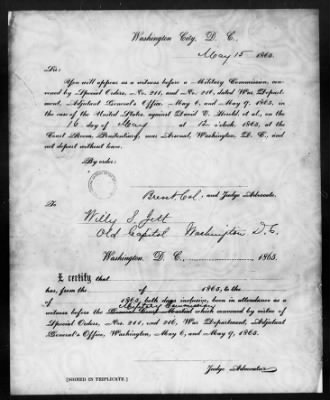 Washington City, D. C.
May 15 1865.
Sir:
You will appear as a witness before a Military Commission, con-
vened by Special Orders, Nos. 211, and No. 216, dated War Depart-
ment, Adjutant General's Office, May 6, and May 9, 1865, in
the case of the United States, against David E. Herold, et al., on the
16 day of May at 10 o'clock, 1865, at the
Court Room, Penitentiary, near Arsenal, Washington, D. C., and
not depart without leave.
By order:
Brevet Col. and Judge Advocate.
To
Willy S. Jett
Old Capitol Washington D.C.
Washington, D. C. 1865.
I certify that
has, from the of 1865, to the
of 1865, both days inclusive, been in attendance as a
Military Commission
witness before the General Court Martial which convened by virtue of
Special Orders, Nos. 211, and 216, War Department, Adjutant
General's Office, Washington, May 6, and May 9, 1865.
Judge Advocate
[SIGNED IN TRIPLICATE.]